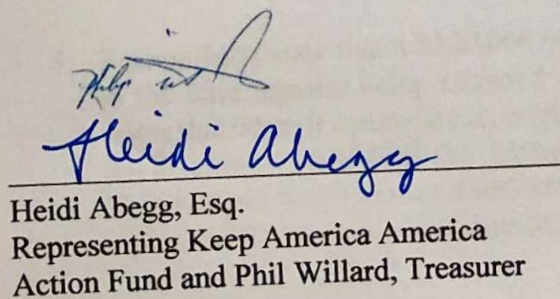 Heidi Abegg
Heidi Abegg, Esq.
Representing Keep America America
Action Fund and Phil Willard, Treasurer